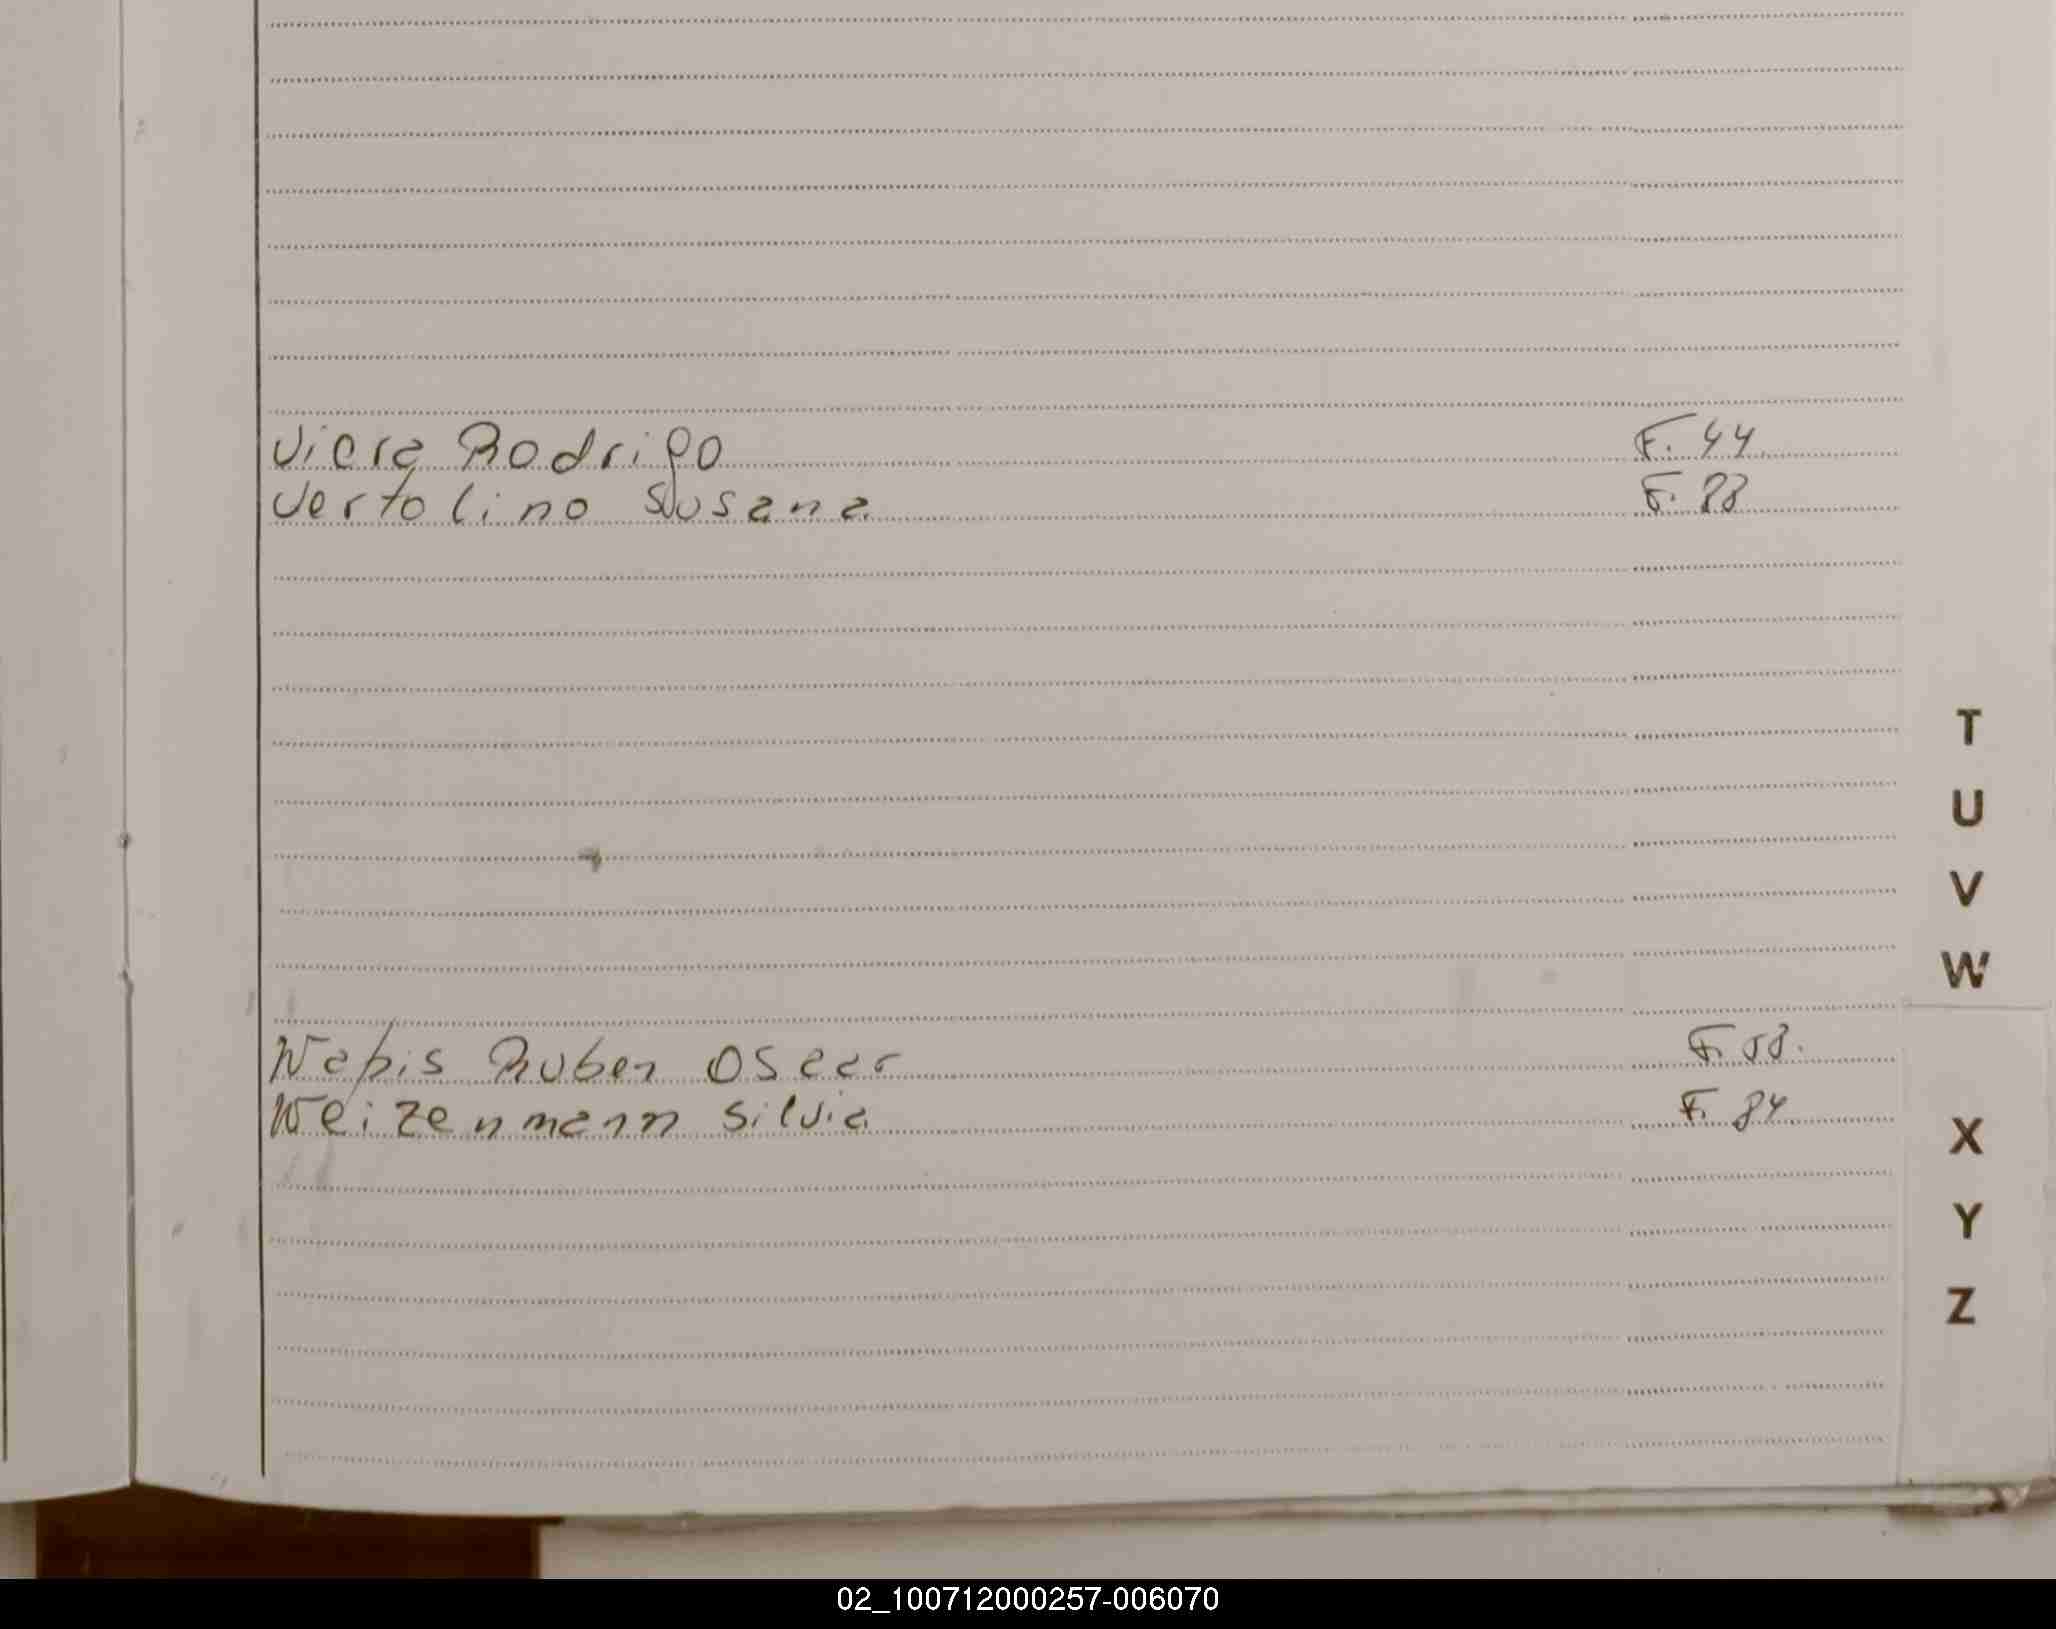 Viera Rodrigo F. 44
Vertolino Susana F. 88
T
U
V
W
Wapis Ruben Oscar F. 58.
Weizenmann Silvia F. 84
X
Y
Z
02_100712000257-006070